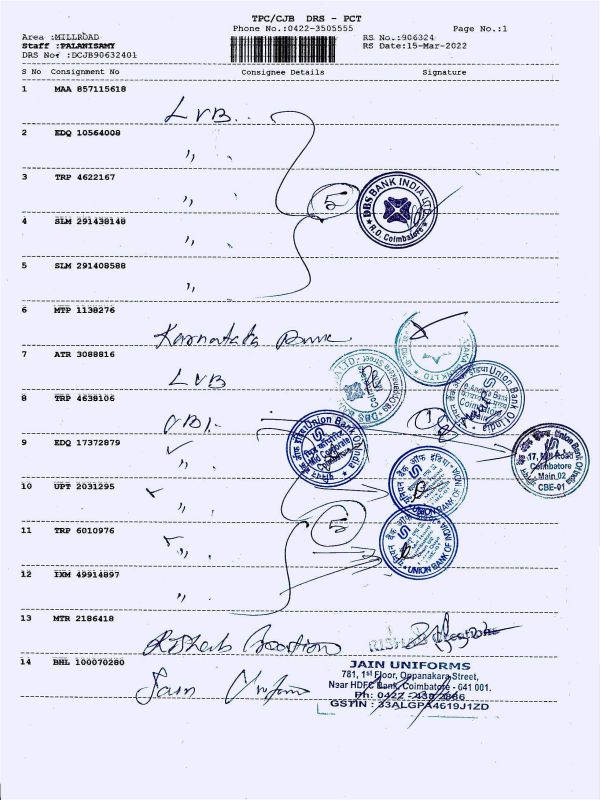 TPC/CJB DRS - PCT
Phone No.:0422-3505555
Page No.:1
Area :MILLROAD
Staff :PALANISAMY
DRS No: :DCJB90632401
RS No.:906324
RS Date:15-Mar-2022
S No Consignment No Consignee Details Signature
1 MAA 857115618
LVB
2 EDQ 10564008
"
3 TRP 4622167
"
5
DBS BANK INDIA LTD
R.O. Coimbatore
4 SLM 291438148
"
5 SLM 291408588
"
6 MTP 1138276
Karnataka Bank
7 ATR 3088816
LVB
8 TRP 4638106
UBI
1
Union Bank Of India
9 EDQ 17372879
"
Union Bank Of India
Mid Corporate
Union Bank Of India
17, Mill Road
Coimbatore
Main 02
CBE-01
10 UPT 2031295
"
UNION BANK OF INDIA
यूनियन बैंक ऑफ इंडिया
11 TRP 6010976
"
5
UNION BANK OF INDIA
यूनियन बैंक ऑफ इंडिया
12 IXM 49914897
"
13 MTR 2186418
Rishab
14 BHL 100070280
Jain Uniform
JAIN UNIFORMS
781, 1st Floor, Oppanakara Street,
Near HDFC Bank, Coimbatore - 641 001.
Ph: 0422 - 439 3866
GSTIN : 33ALGPA4619J1ZD